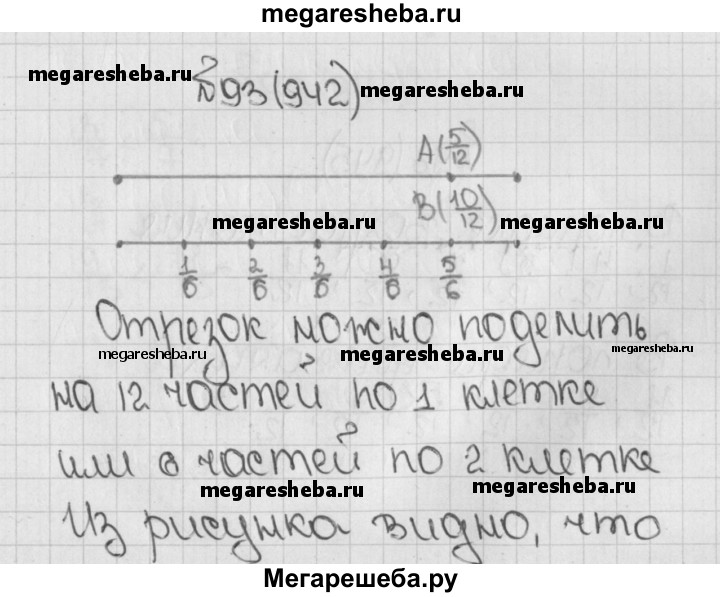 megaresheba.ru
megaresheba.ru
№93(942) megaresheba.ru
A(5/12)
B(10/12)
megaresheba.ru megaresheba.ru
1/6 2/6 3/6 4/6 5/6
Отрезок можно поделить
megaresheba.ru megaresheba.ru megaresheba.ru
на 12 частей по 1 клетке
или 6 частей по 2 клетке
megaresheba.ru megaresheba.ru
Из рисунка видно, что
Мегарешеба.ру